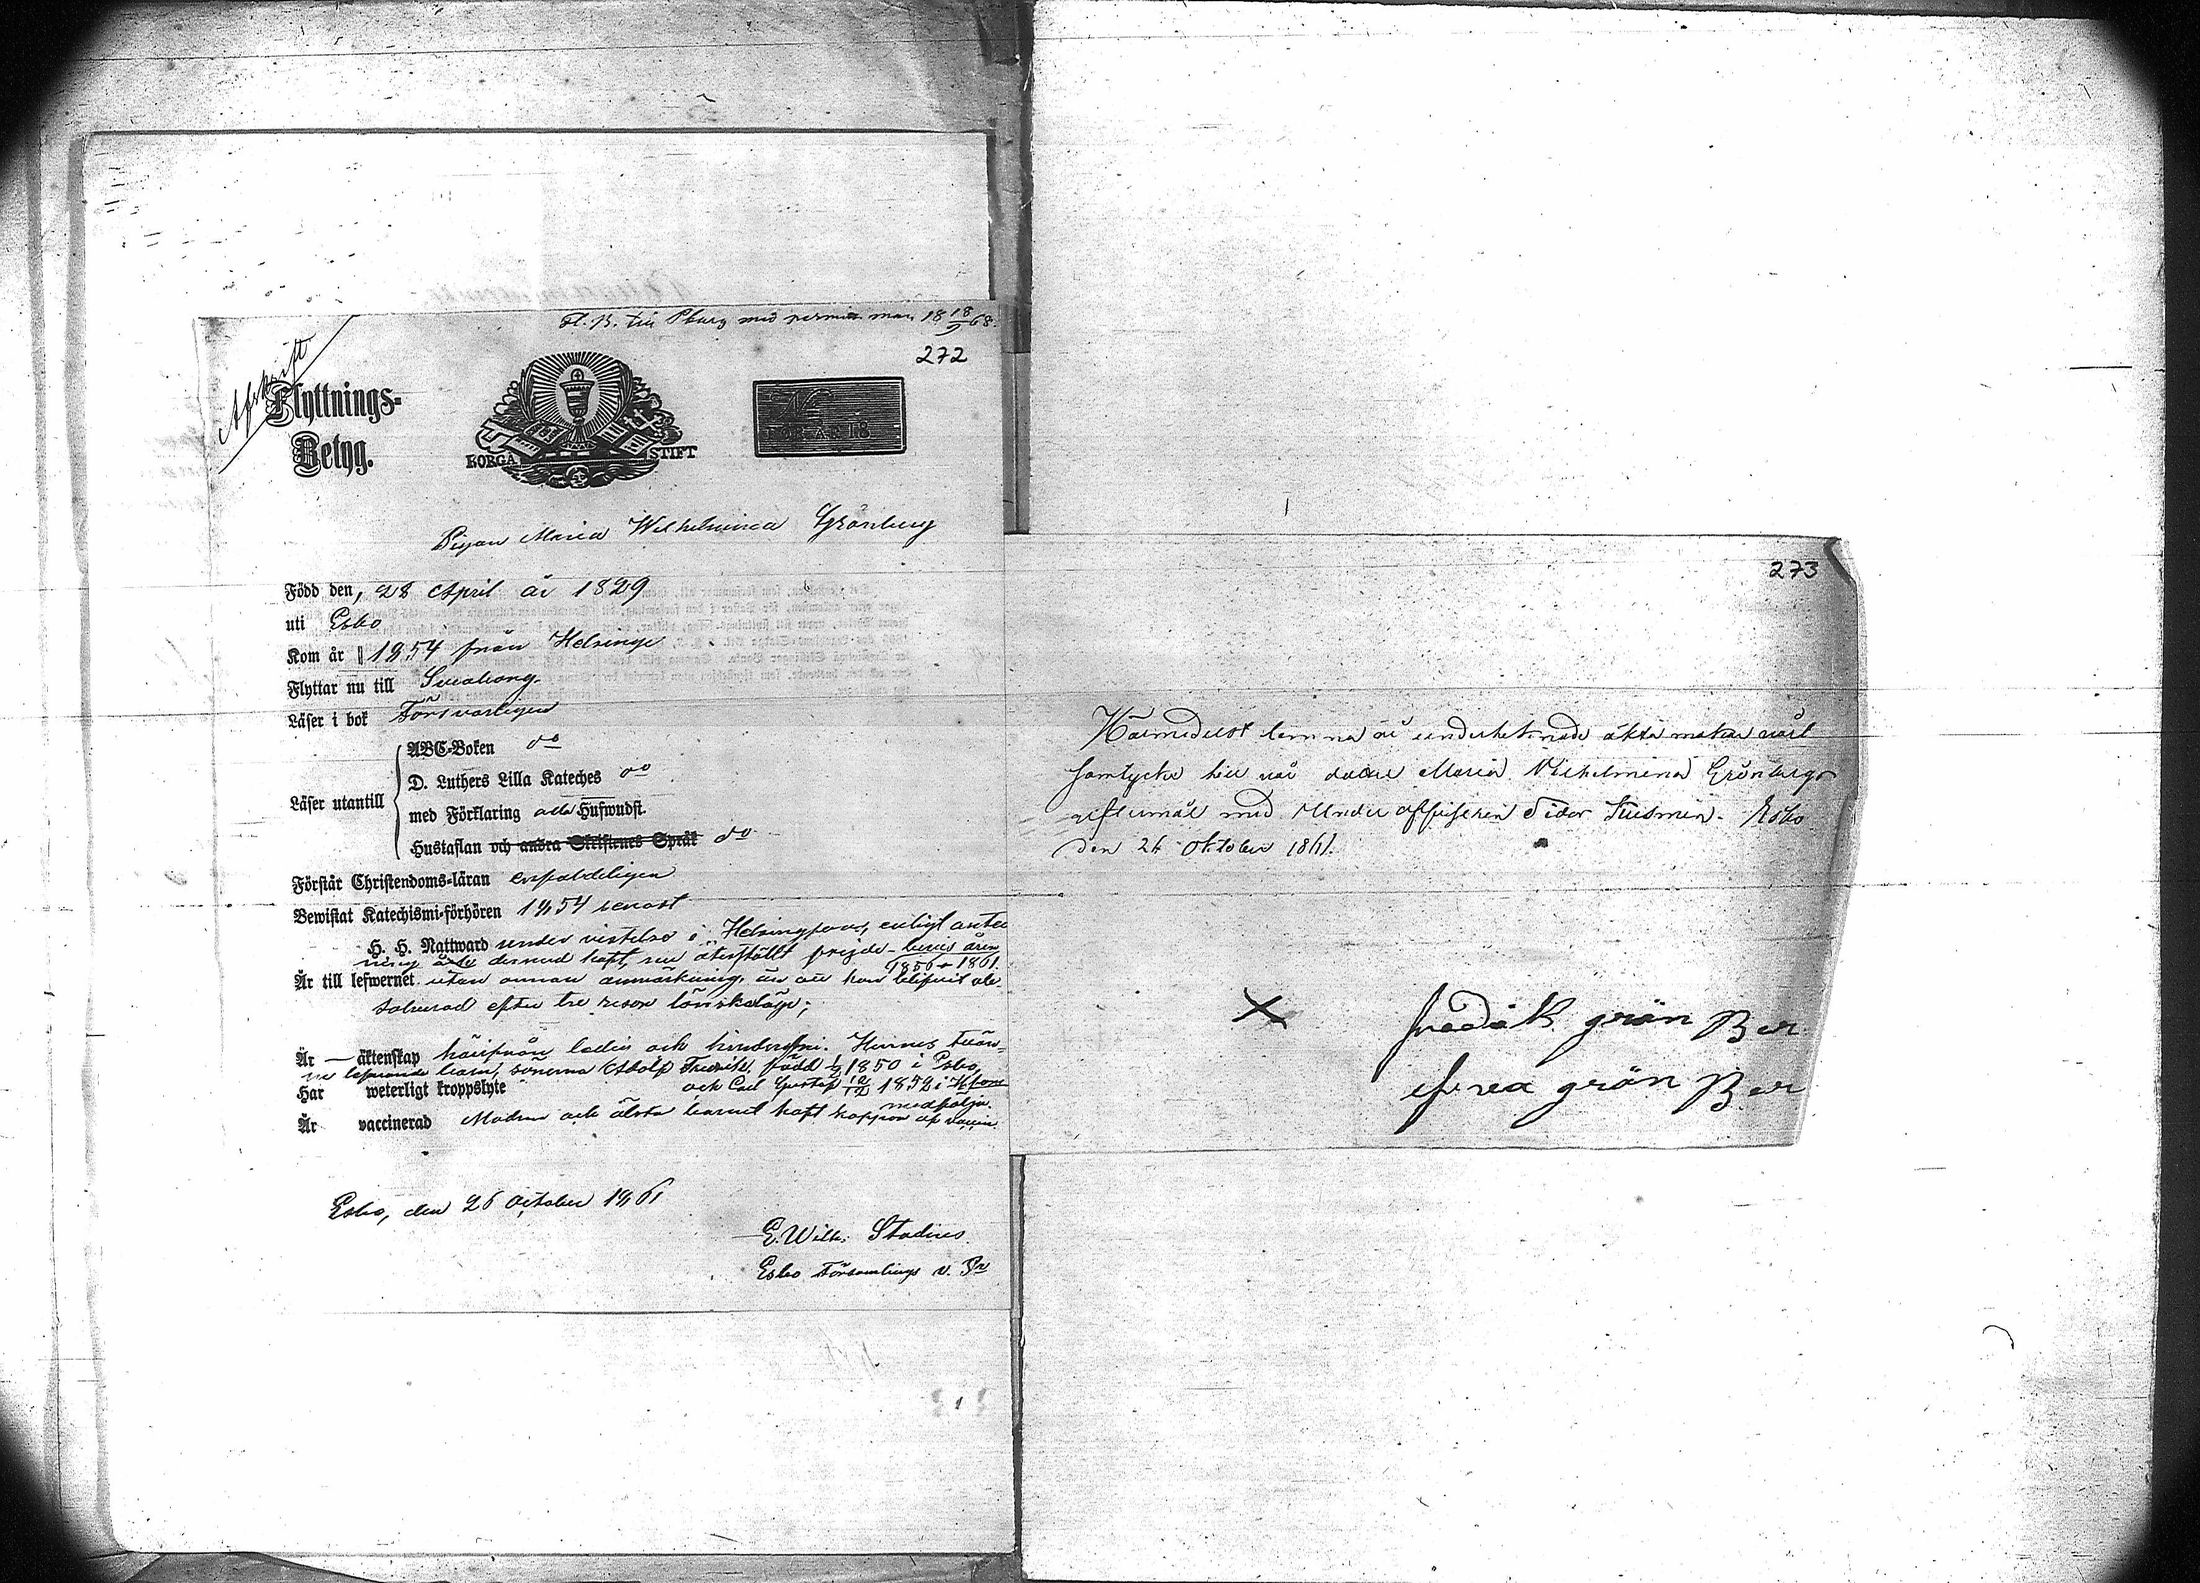 Fl. B. till Pburg med permitt. man 18 18/9 68.
272
Afskrift
Flyttnings-
Betyg.
BORGÅ STIFT
N
FÖR ÅR 18
Pigan Maria Wilhelmina Grönberg
Född den, 28 April år 1829
uti Esbo
Kom år 1854 från Helsinge
Flyttar nu till Sveaborg.
Läser i bok Försvarligen
ABC-Boken do
D. Luthers Lilla Kateches do
Läser utantill
med Förklaring Hufwudst.
Hustaflan och andra Skriftenes Språk do
Förstår Christendoms-läran
Bewistat Katechismi-förhören 1854 senast
H. H. Nattward under vistelse i Helsingfors, enligt anteck
ning dermed haft, nu återställdt frejde-bevis åren
1856–1861.
Är till lefwernet utan annan anmärkning, än att hon blifvit ab-
solverad efter tre resor lönskaläge;
Är — äktenskap härifrån ledig och hinderfri. Hennes tvän-
ne lefvande barn, sönerna Adolf Fredrik, född 1/2 1850 i Esbo,
Har weterligt kroppslyte och Carl Gustaf 12/12 1852 i H:fors
medfölja.
Är vaccinerad Modren och älsta barnet haft koppor af vaccin.
Esbo, den 26 October 1861
E. Wilh. Stadius.
Esbo Församlings v. Pr
273
Härmedelst lemna vi undertecknade äkta makar vårt
samtycke till vår dotter Maria Vilhelmina Grönbergs
giftermål med Under officieren Sidor Kusmin. Esbo
den 26 Oktober 1861.
X
fredrik grön Ber
efrea grön Ber